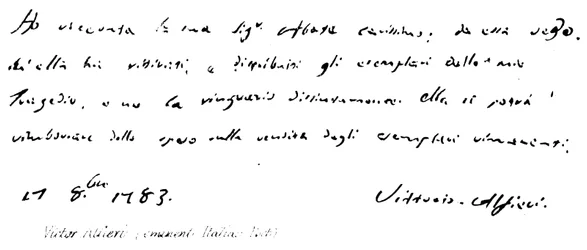 Ho ricevuta la sua Sigr. Abate carissimo; da essa vedo,
ch'ella ha ritirati, e distribuiti gli esemplari delle mie
Tragedie, e ne la ringrazio distintamente. Ella si potrà
rimborsare delle spese sulla vendita degli esemplari rimanenti.
17 8.bre 1783.
Vittorio Alfieri.
Victor Alfieri (eminent Italian Poet)